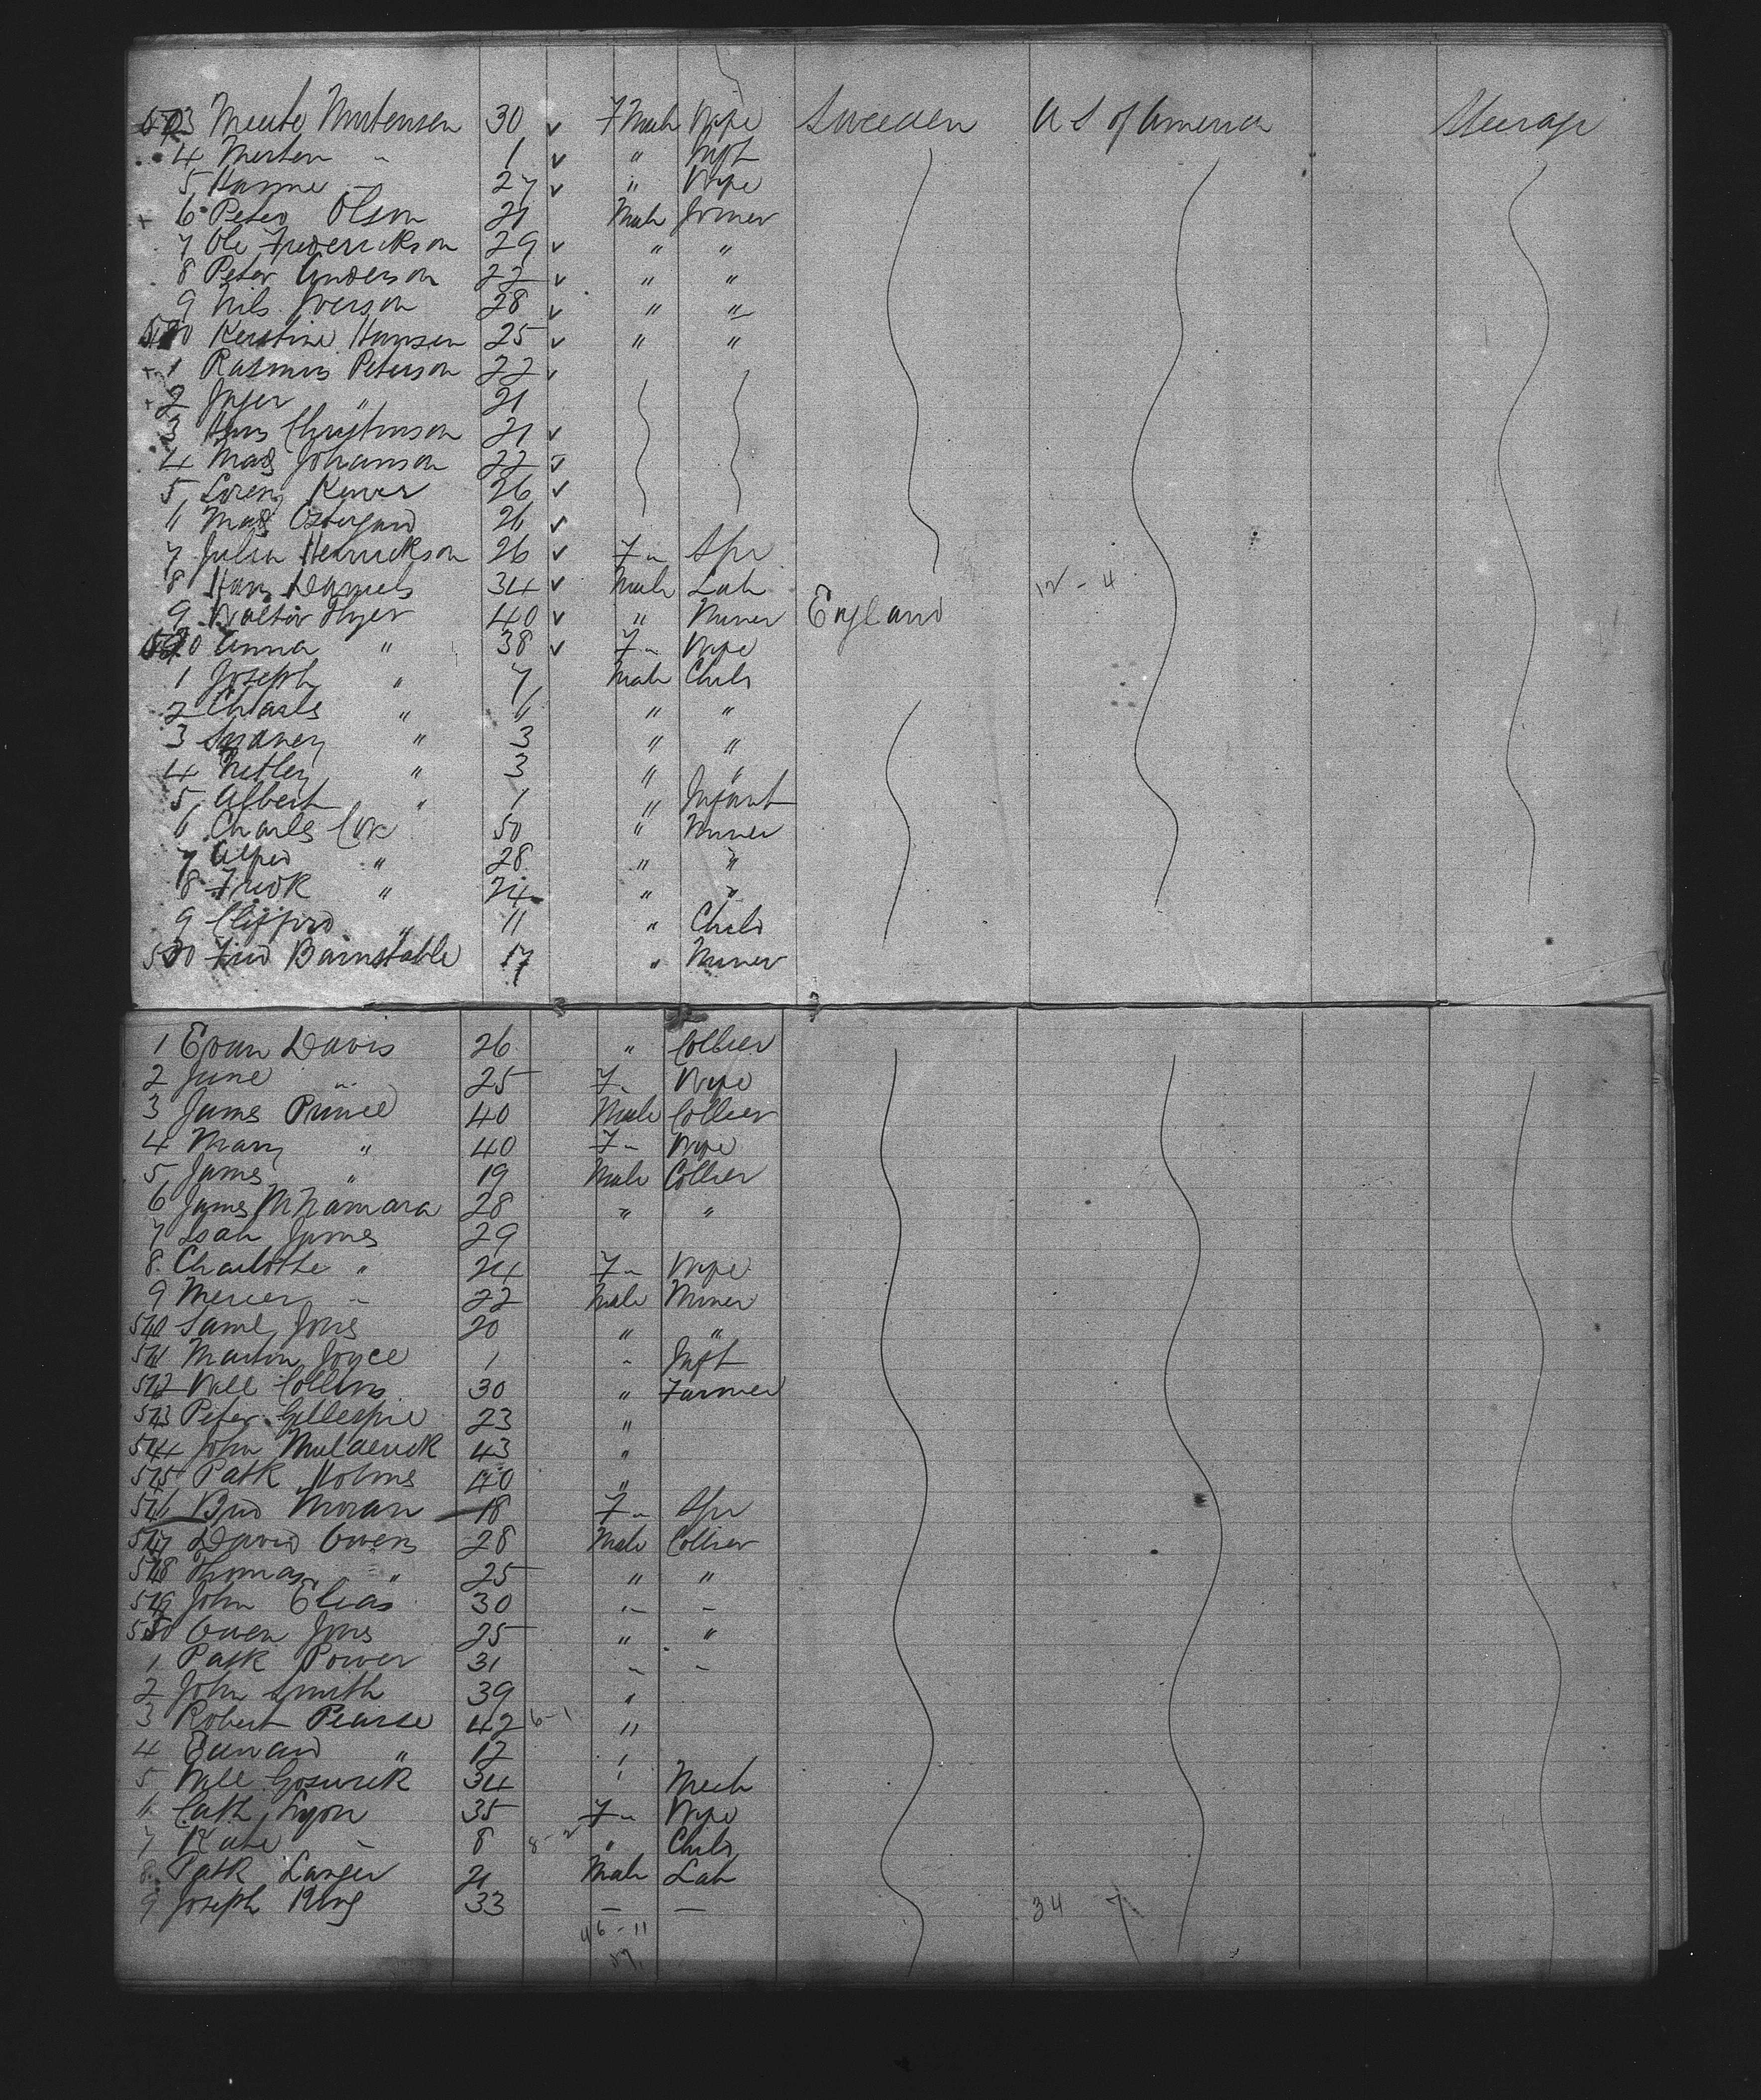 3 Mortensen 30 v F Male Wife Sweden U S of America Steerage
4 Morten " 1 v " Inft
5 Hanne " 27 v " Wife
+ 6 Peter Olson 21 Male Joiner
7 Ole Frederickson 29 v " "
8 Peter Anderson 22 v " "
9 Nils Iverson 28 v " "
Kerstine Hansen 25 v " "
+ 1 Rasmus Peterson 22 v
+ 2 Inger " 21
3 Hans Christenson 21 v
4 Mads Johanson 22 v
5 26 v
6 Mads Ostergard 21 v
7 Julia Henrickson 26 v F " Spr
8 Hans Daniels 34 v Male Lab 12 - 4
9 Walter Hyer 40 v " Miner England
Anna " 38 v F " Wife
1 Joseph " 7 Male Child
2 Charles " 6 " "
3 Sydney " 3 " "
4 " 3 " "
5 Albert " 1 " Infant
6 Charles Cox 50 " Miner
7 Alfred " 28 " "
8 Fredk " 24 " "
9 Clifford " 11 " Child
Fred Barnstable 17 " Miner
1 Evan Davis 26 " Collier
2 Jane " 25 F " Wife
3 James Prince 40 Male Collier
4 Mary " 40 F " Wife
5 James " 19 Male Collier
6 James McNamara 28 " "
7 Isah James 29
8 Charlotte " 24 F " Wife
9 Mercer " 22 Male Miner
540 Saml Jones 20 " "
541 Martin Joyce 1 " Inft
542 Will Collins 30 " Farmer
543 Peter Gillespie 23 "
544 John Mulderick 43 "
545 Patk Holmes 40 "
546 Brid Moran 18 F " Spr
547 David Owens 28 Male Collier
548 Thomas " 25 " "
549 John Elias 30 " "
550 Owen Jones 25 " "
1 Patk Power 31 " "
2 John Smith 39 "
3 Robert Pearse 42 6-1 "
4 Edward " 12 "
5 Will 34 " Mech
6 Cath Lyon 35 F " Wife
7 Kate " 8 8-2 " Child
8 Patk 21 Male Lab
9 Joseph King 33 — — 34 7
46-11
57